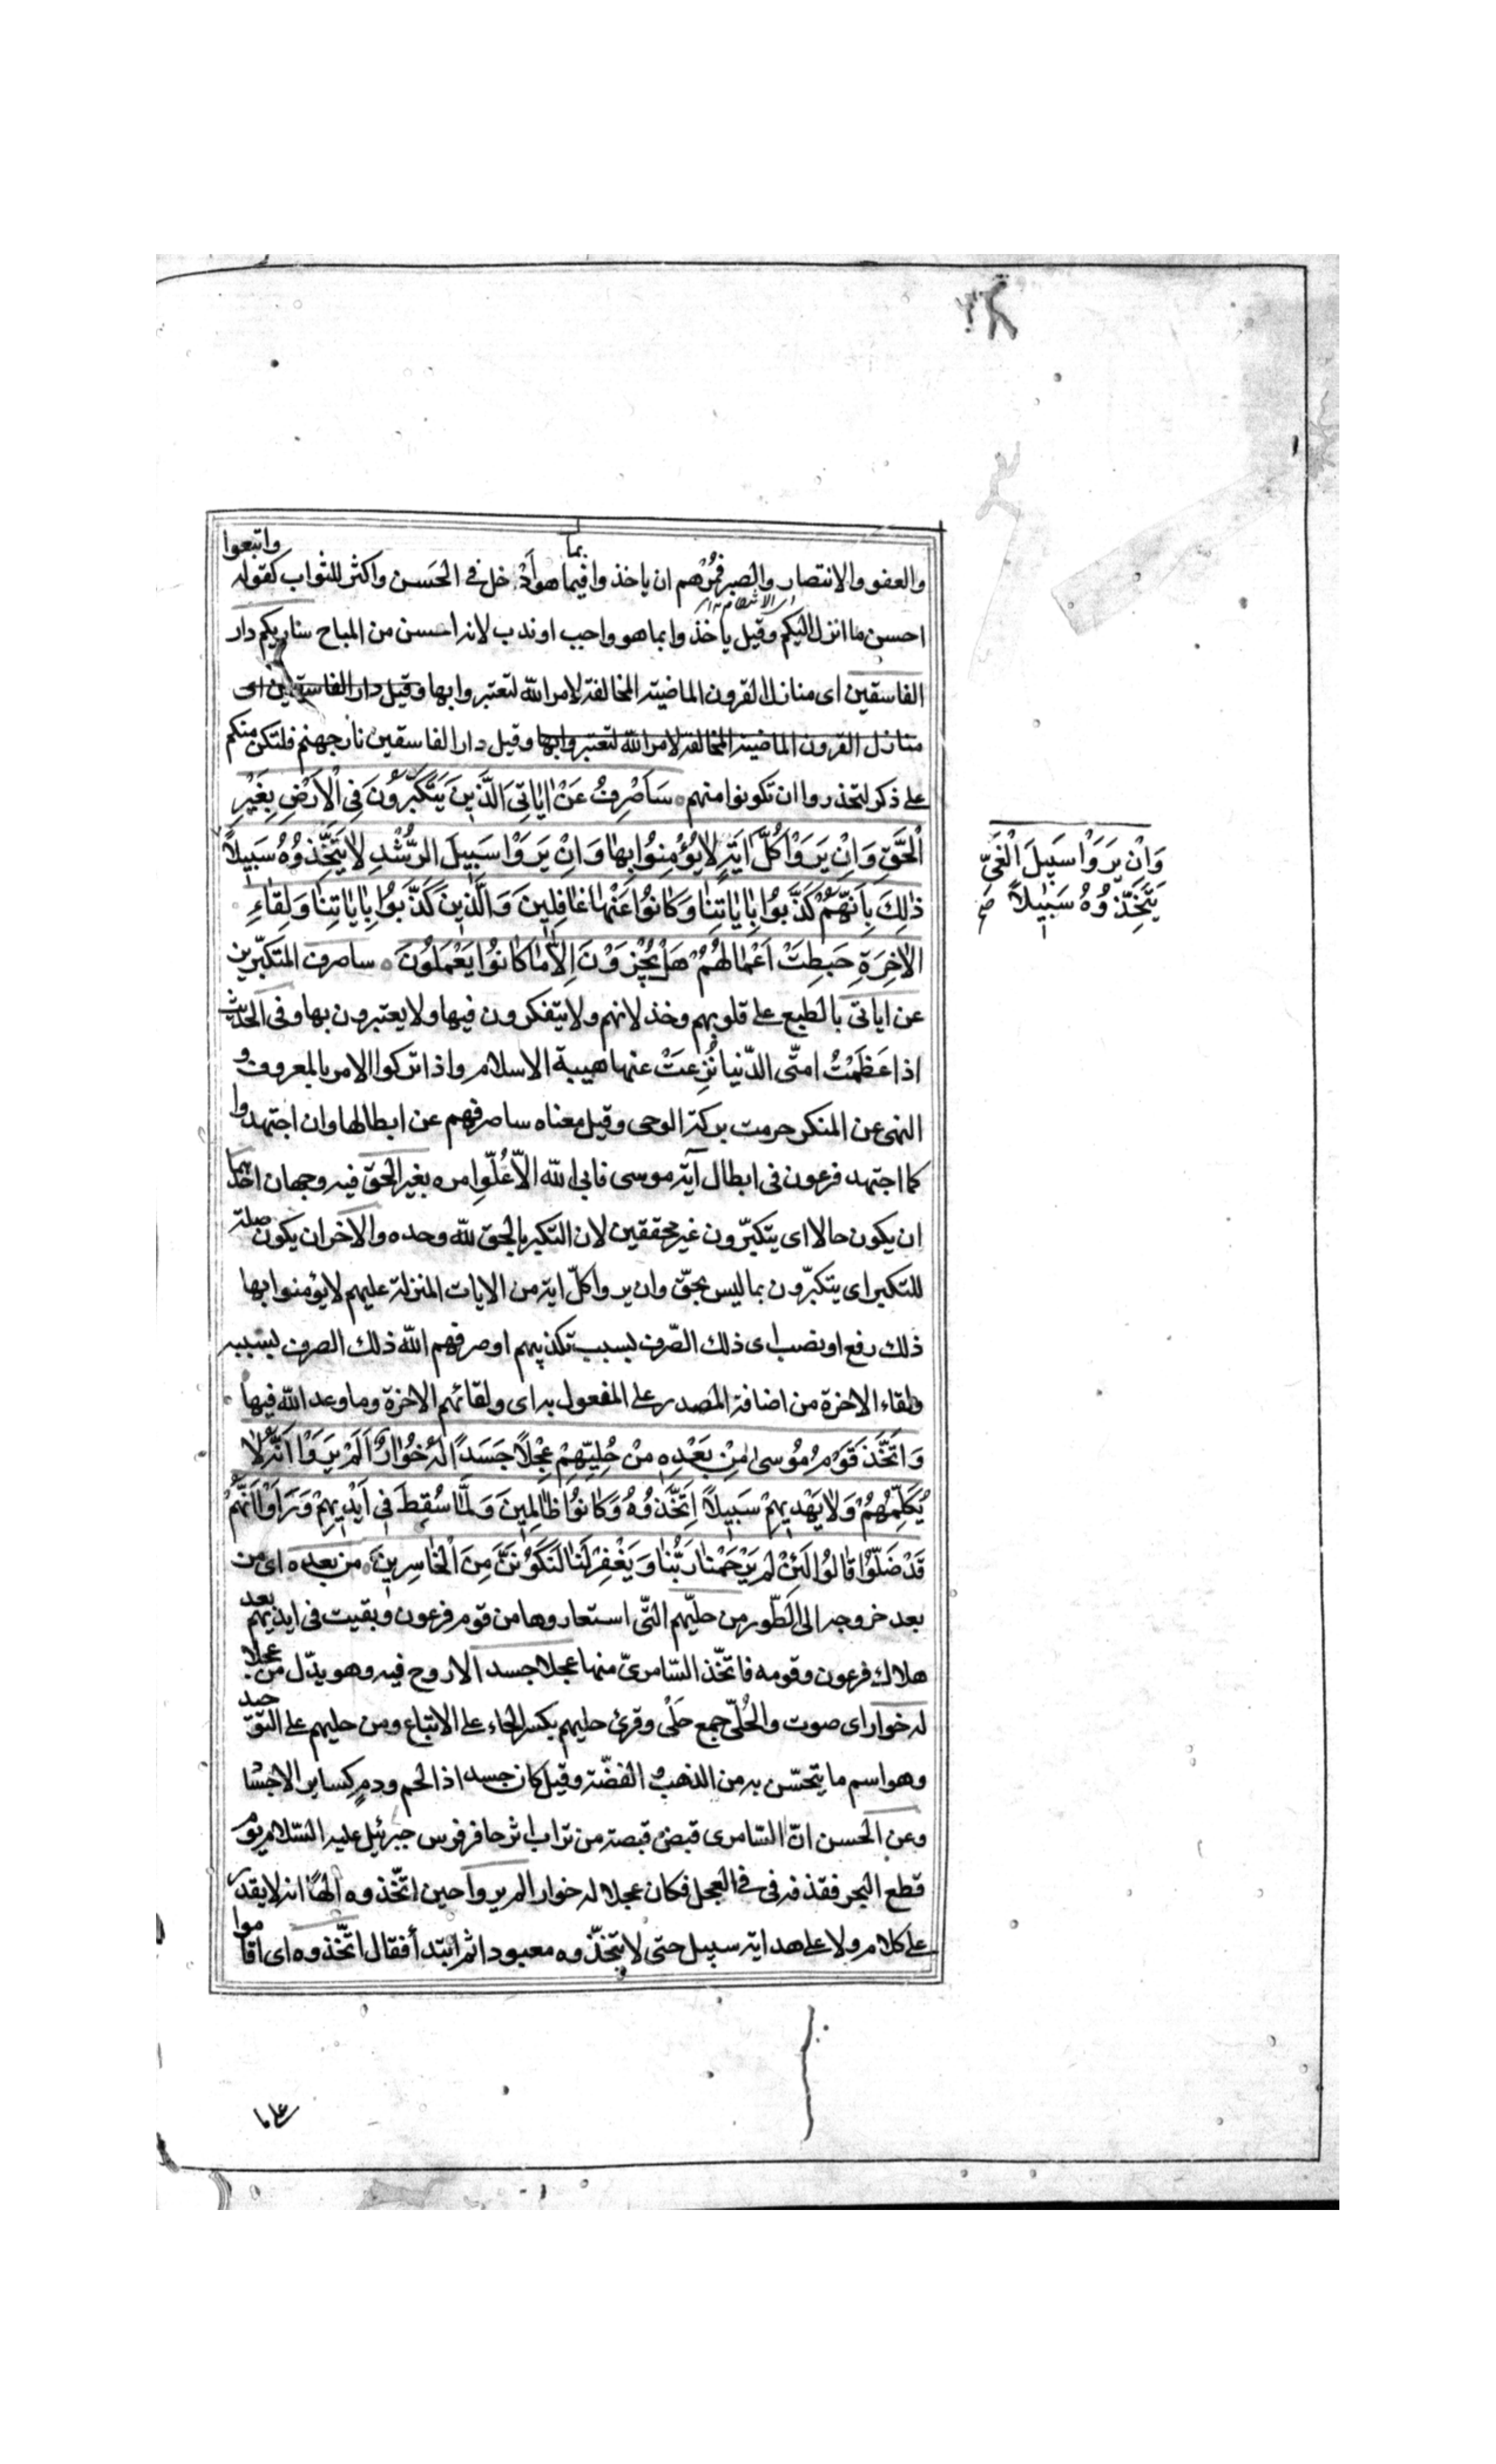 والعفو والانتصار والصبر فمُرْهم ان ياخذوا بما فيما هو أدخل فى الحَسن واكثر للثواب كقوله واتبعوا
احسن ما انزل اليكم وقيل ياخذوا بما هو واجب او ندب لانه احسن من المباح ساريكم دار
الفاسقين اى منازل القرون الماضية المخالفة لامر الله لتعتبروا بها وقيل دار الفاسقين اى
منازل القرون الماضية المخالفة لامر الله لتعتبروا بها وقيل دار الفاسقين نار جهنم فلتكن منكم
على ذكر لتحذروا ان تكونوا منهم سَاَصْرِفُ عَنْ اٰيَاتِىَ الَّذينَ يَتَكَبَّرُونَ فِى الْاَرْضِ بِغَيْرِ
الْحَقِّ وَاِنْ يَرَوْا كُلَّ اٰيَةٍ لا يُؤْمِنُوا بِهٰا وَاِنْ يَرَوْا سَبِيلَ الرُّشْدِ لا يَتَّخِذُوهُ سَبِيلاً
وَاِنْ يَرَوْا سَبِيلَ الْغَىِّ
يَتَّخِذُوهُ سَبِيلاً صح
ذٰلِكَ بِاَنَّهُمْ كَذَّبُوا بِاٰيٰاتِنٰا وَكٰانُوا عَنْهٰا غٰافِلِينَ وَالَّذِينَ كَذَّبُوا بِاٰيٰاتِنٰا وَلِقٰاءِ
الْاٰخِرَةِ حَبِطَتْ اَعْمٰالُهُمْ هَلْ يُجْزَوْنَ اِلّٰا مٰا كٰانُوا يَعْمَلُونَ ساصرف المتكبّرين
عن اياتى بالطبع على قلوبهم وخذلانهم ولا يتفكرون فيها ولا يعتبرون بها وفى الحديث
اذا عَظَمَتْ امتّى الدّنيا نُزِعَتْ عنها هيبة الاسلام واذا تركوا الامر بالمعروف و
النهى عن المنكر حرمت بركة الوحى وقيل معناه ساصرفهم عن ابطالها وان اجتهدوا
كما اجتهد فرعون فى ابطال آية موسى فابى الله الاّ عُلّوا مره بغير الحق فيه وجهان احدهما
ان يكون حالا اى يتكبّرون غير محققين لان التكبر بالحق لله وحده والآخر ان يكون صلة
للتكبر اى يتكبّرون بما ليس بحقّ وان يروا كلّ اية من الايات المنزلة عليهم لا يؤمنوا بها
ذلك رفع او نصب اى ذلك الصّرف بسبب تكذيبهم او صرفهم الله ذلك الصرف بسببه
ولقاء الاخرة من اضافة المصدر على المفعول به اى ولقائهم الاخرة وما وعد الله فيها
وَاتَّخَذَ قَوْمُ مُوسىٰ مِنْ بَعْدِهِ مِنْ حُلِيِّهِمْ عِجْلاً جَسَدًا لَهُ خُوٰارٌ اَلَمْ يَرَوْا اَنَّهُ لٰا
يُكَلِّمُهُمْ وَلٰا يَهْدِيهِمْ سَبِيلاً اِتَّخَذُوهُ وَكٰانُوا ظٰالِمِينَ وَلَمّٰا سُقِطَ فِى اَيْدِيهِمْ وَرَاَوْا اَنَّهُمْ
قَدْ ضَلُّوا قٰالُوا لَئِنْ لَمْ يَرْحَمْنٰا رَبُّنٰا وَيَغْفِرْ لَنٰا لَنَكُونَنَّ مِنَ الْخٰاسِرِينَ من بعده اى من
بعد خروجه الى الطّور من حليّهم التّى استعاروها من قوم فرعون وبقيت فى ايديهم بعد
هلاك فرعون وقومه فاتخّذ السّامرىّ منها عجلا جسدا لا روح فيه وهو بدّل من عجلا
له خوار اى صوت والحُلىّ جمع حَلْى وقرئ حليهم بكسر الحاء على الاتباع ومن حليهم على التوحيد
وهو اسم ما يتحسّن به من الذهب و الفضّة وقيل كان جسدا ذا لحم ودم كساير الاجسا
وعن الحسن انّ السّامرى قبض قبصة من تراب اثر حافر فرس جبرئيل عليه السّلام يوم
قطع البحر فقذفه فى فى العجل فكان عجلا له خوار الم يروا حين اتّخذوه الهًا انه لا يقدر
على كلام ولا على هداية سبيل حتى لا يتخّذوه معبودا ثم ابتدأ فقال اتّخذوه اى اقاموا